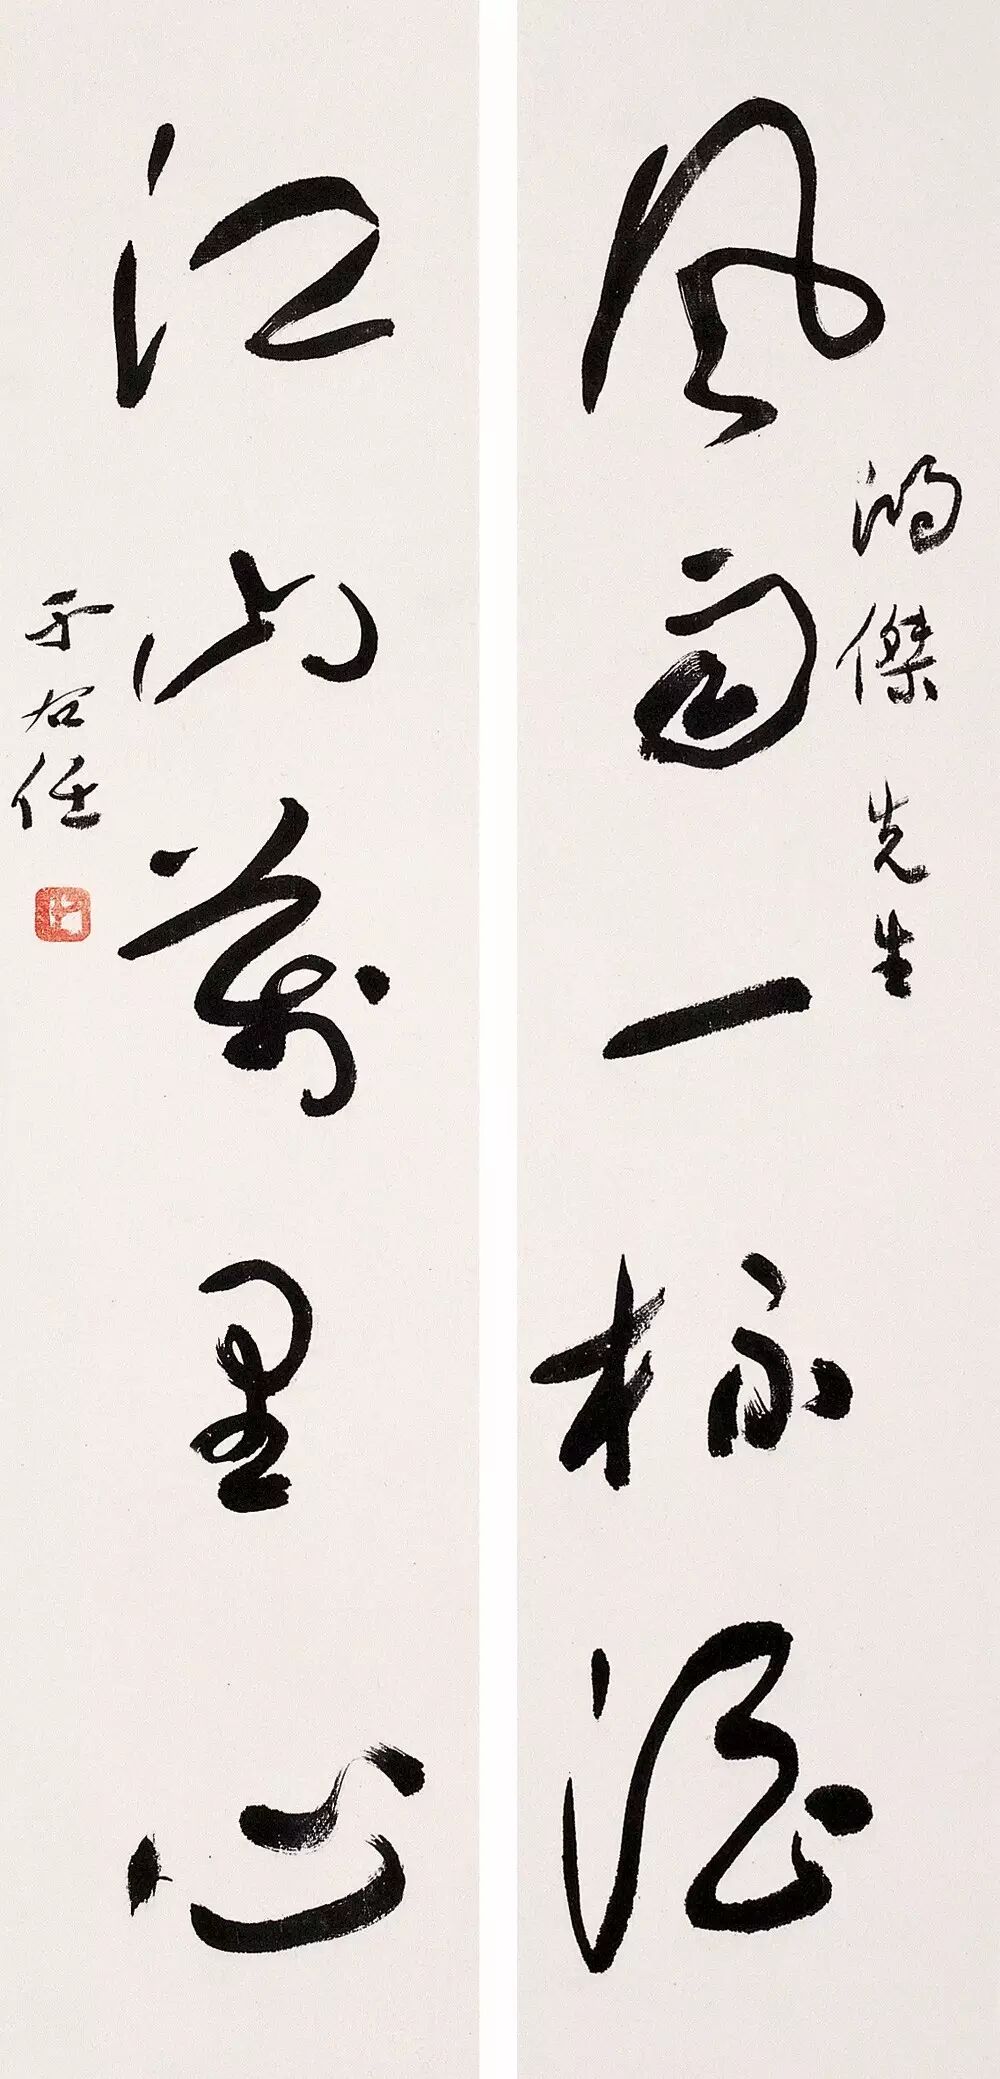 風雨一杯酒
鴻傑先生
江山萬里心
于右任